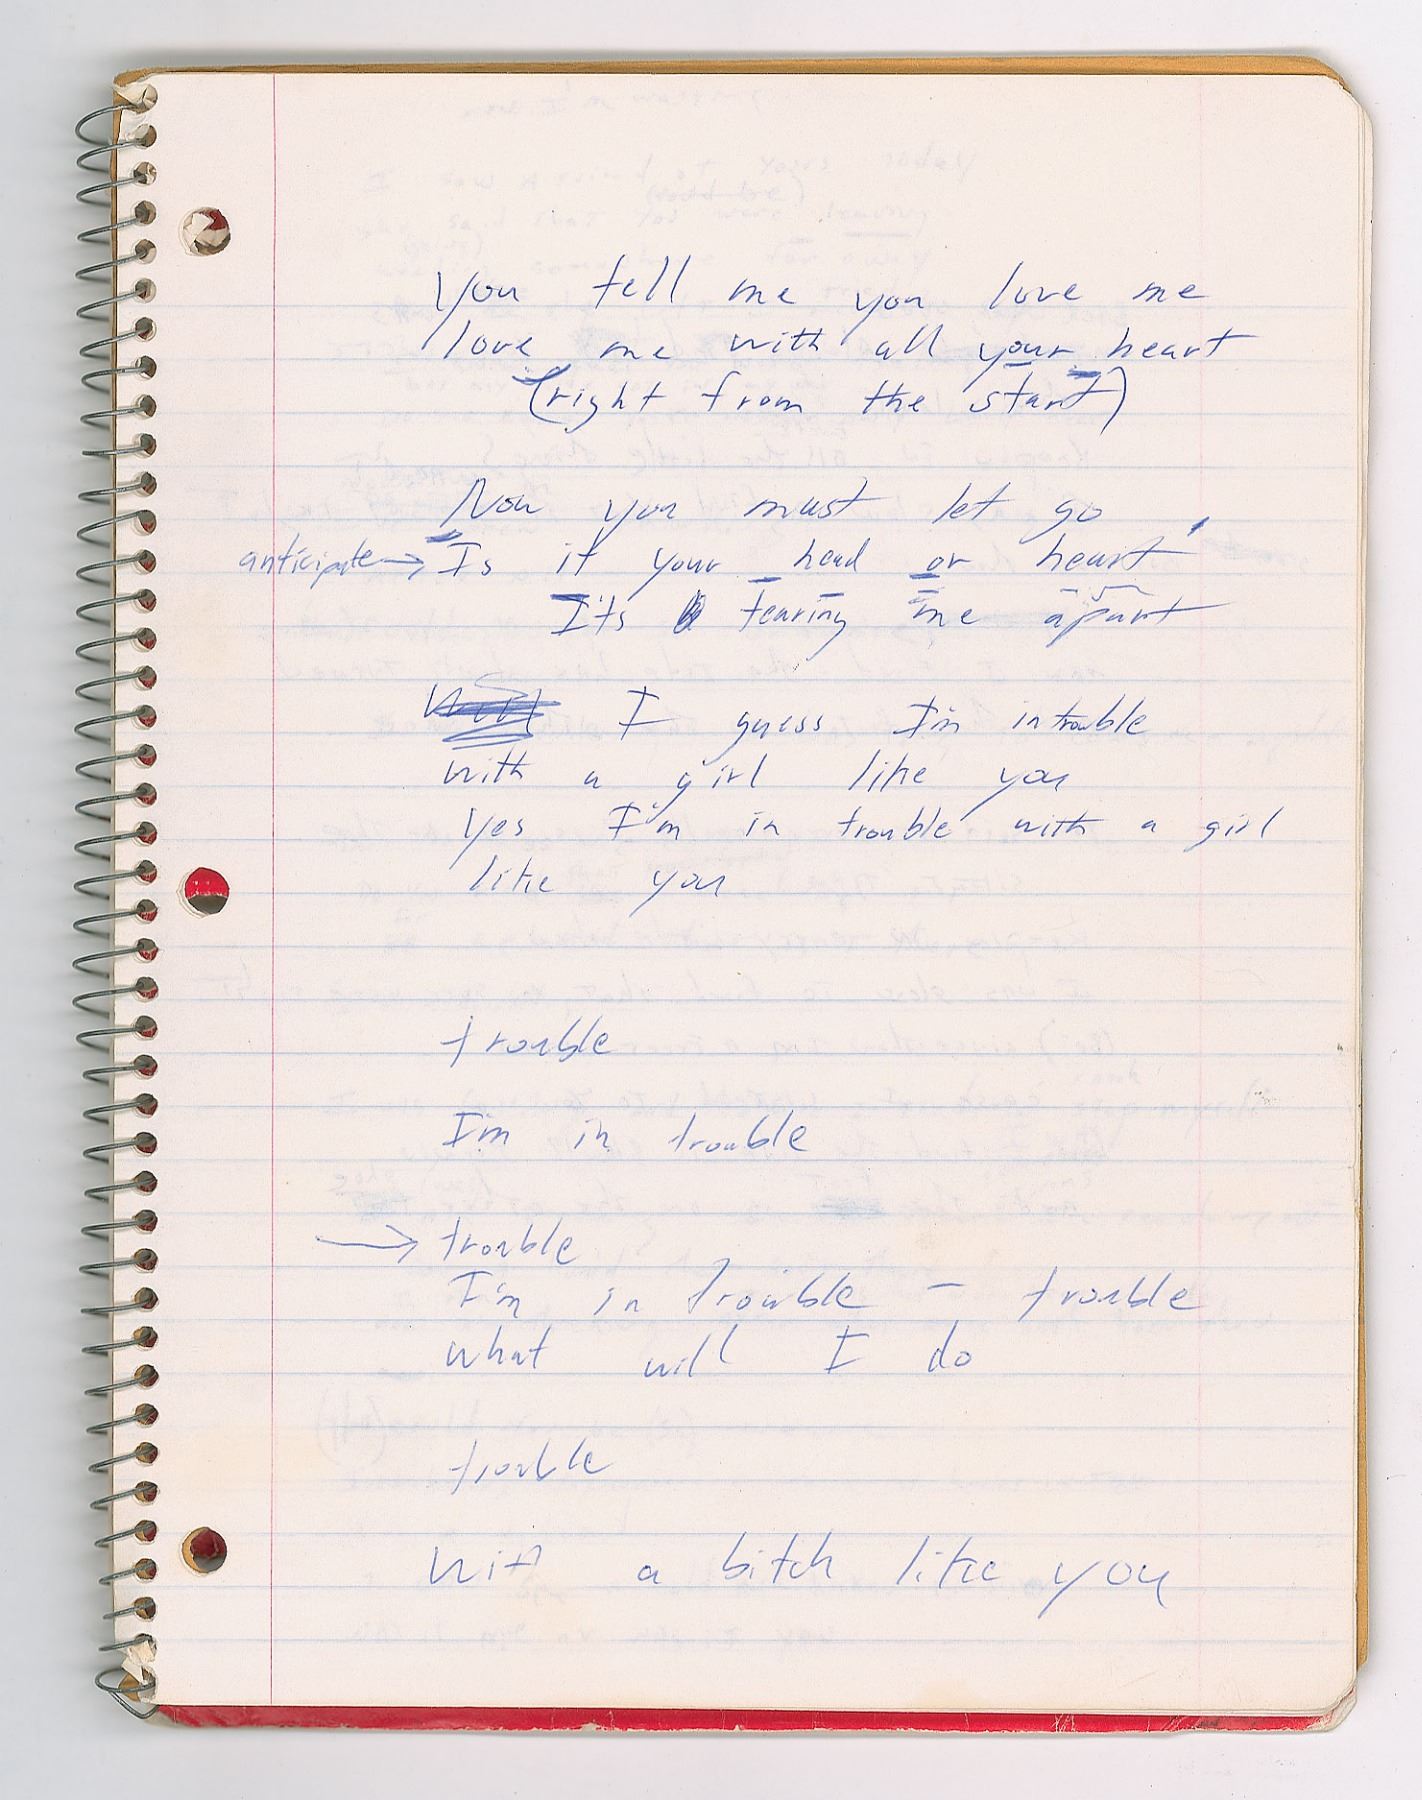 You tell me you love me
love me with all your heart
(right from the start)
Now you must let go
anticipate → Is it your head or heart
It's tearing me apart
I guess I'm in trouble
with a girl like you
Yes I'm in trouble with a girl
like you
trouble
I'm in trouble
→ trouble
I'm in trouble – trouble
what will I do
trouble
with a bitch like you